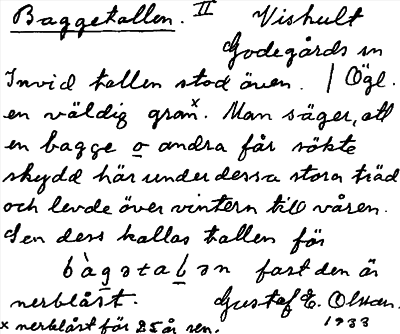 Baggetallen. II Vishult
Godegårds sn
Invid tallen stod även. | Ögl.
en väldig granˣ. Man säger, att
en bagge o andra får sökte
skydd här under dessa stora träd
och levde över vintern till våren.
Sen dess kallas tallen för
bàgətalən fast den är
nerblåst. Gustaf E. Olsson.
x nerblåst för 25 år sen. 1933